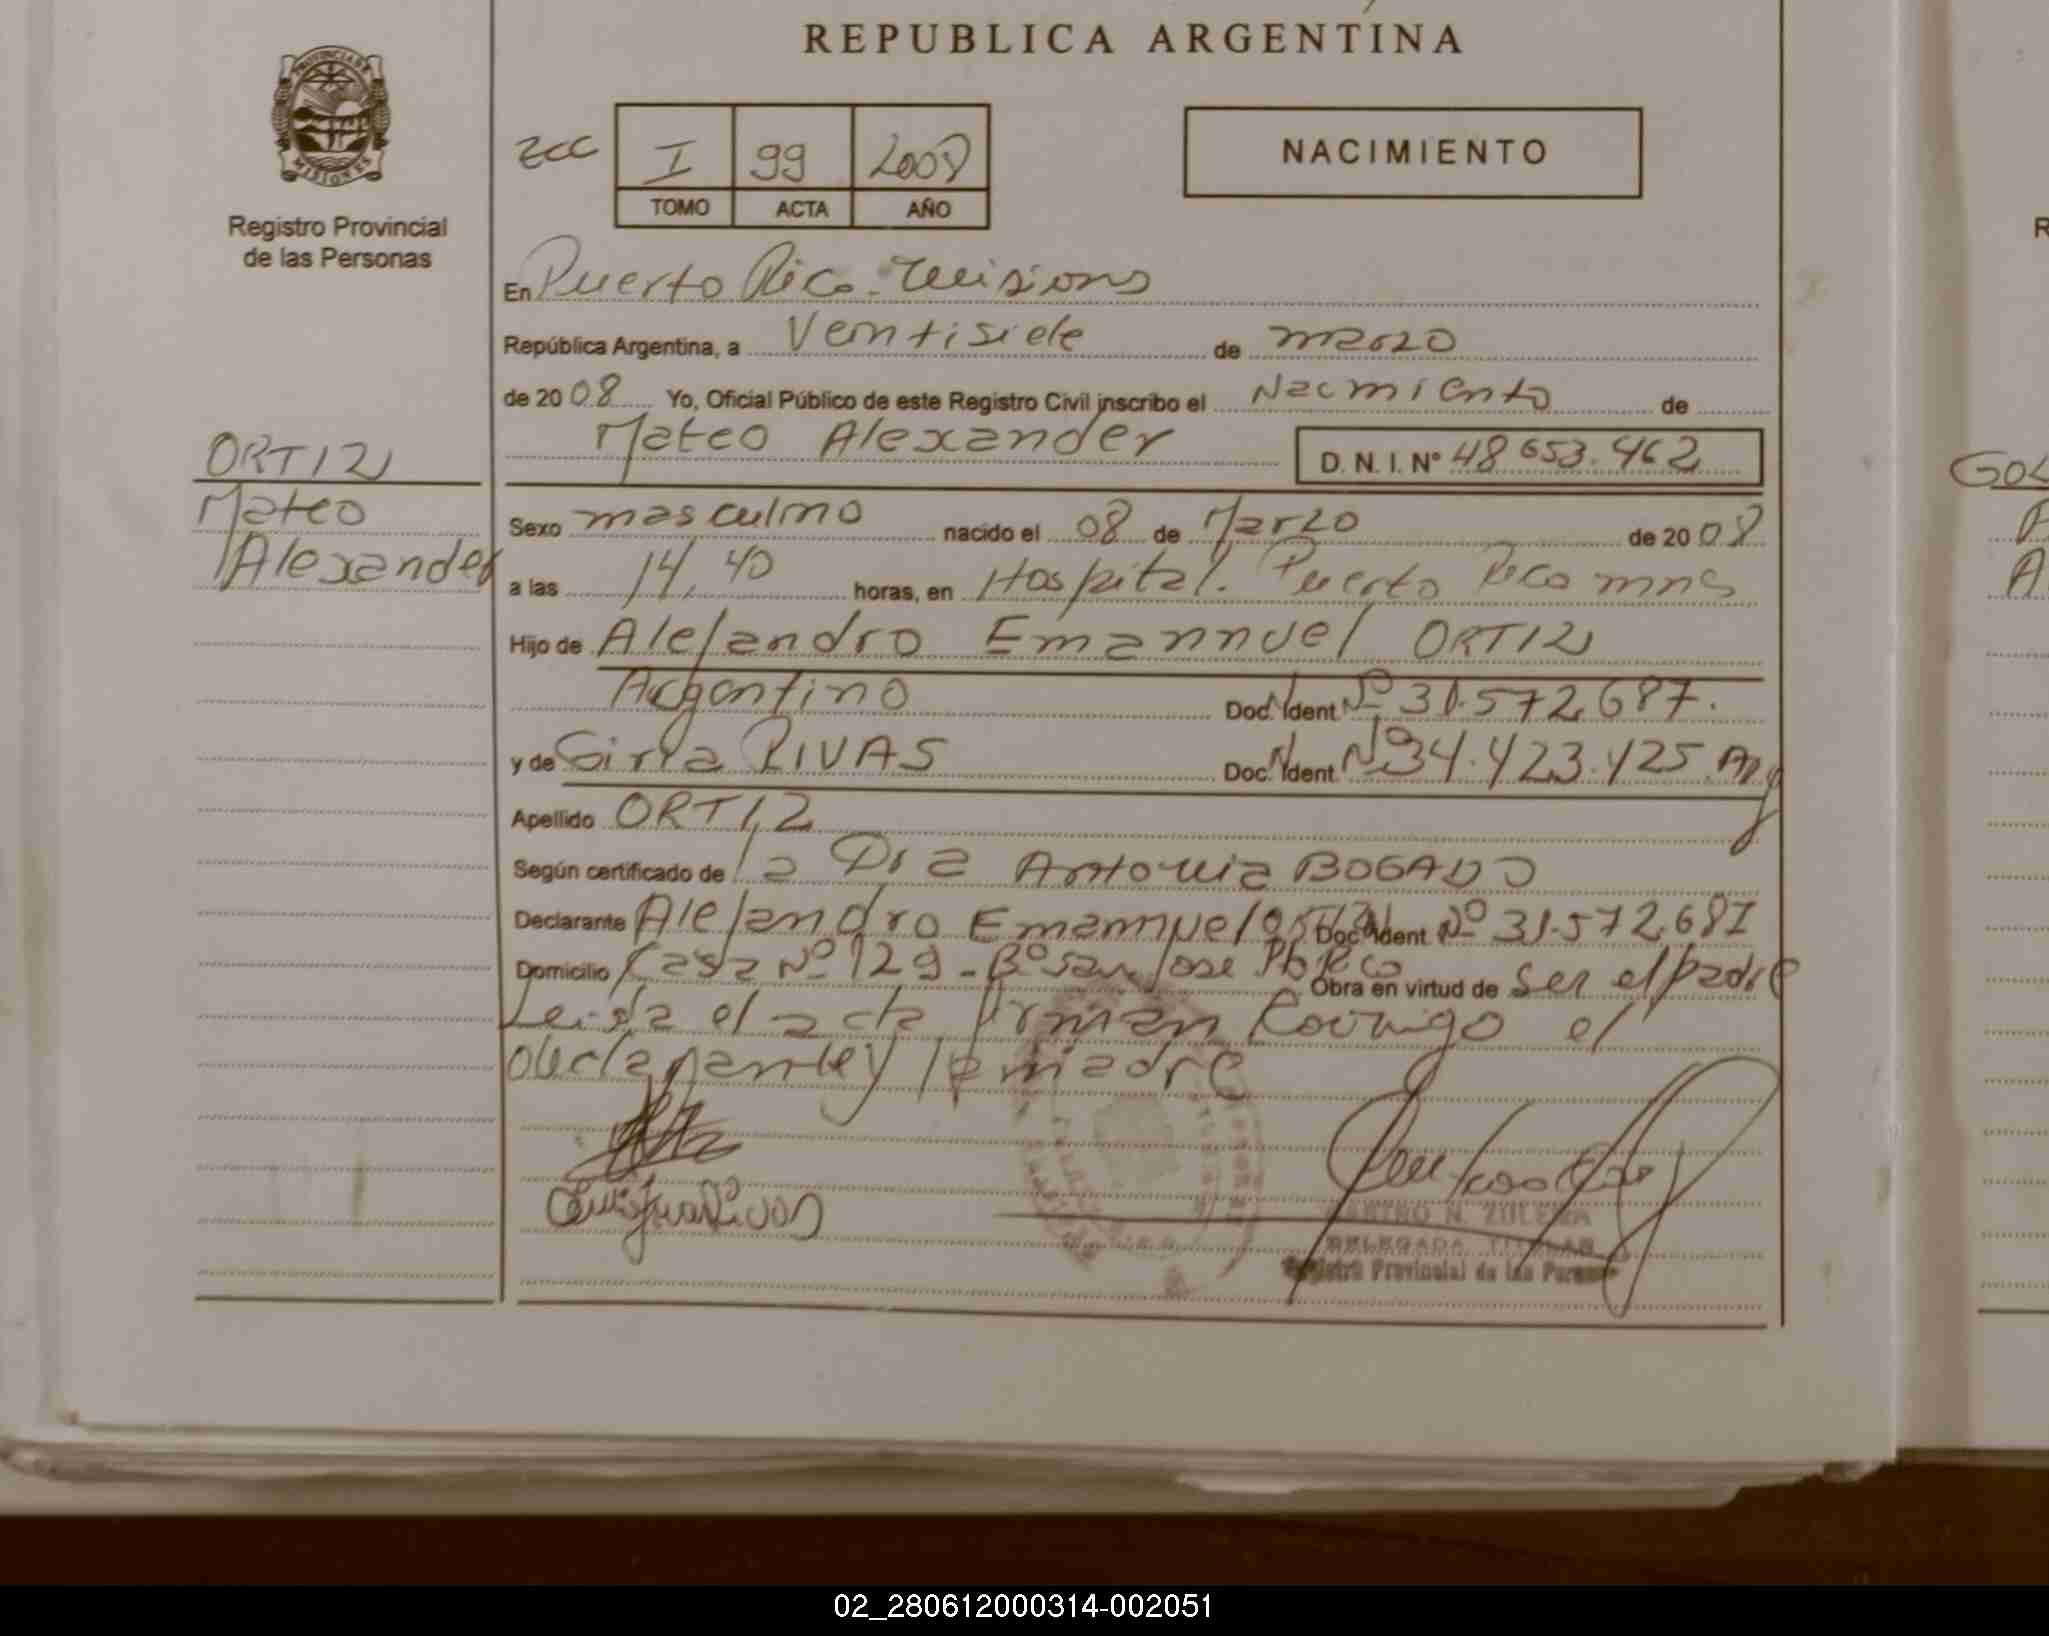 REPUBLICA ARGENTINA
PROVINCIA DE
MISIONES
Registro Provincial
de las Personas
I 99 2008
TOMO ACTA AÑO
NACIMIENTO
En Puerto Rico - Misiones
República Argentina, a Ventisiete de marzo
de 20 08 Yo, Oficial Público de este Registro Civil inscribo el Nacimiento de
Mateo Alexander D. N. I. Nº 48 653.462
ORTIZ
Mateo
Alexander
Sexo masculino nacido el 08 de Marzo de 20 08
a las 14,40 horas, en Hospital. Puerto Rico mns
Hijo de Alejandro Emannuel ORTIZ
Argentino Doc. Ident. Nº 31.572.687.
y de RIVAS Doc. Ident. Nº 34.423.425. Arg
Apellido ORTIZ
Según certificado de la Dra Antonia BOGADO
Declarante Alejandro Emannuel Ortiz Doc. Ident Nº 31.572.687
Domicilio Casa Nº 129 - Bº San Jose Pto Rico Obra en virtud de ser el padre
Leida el acta firman Conmigo el
declarante y la madre
DELEGADA TITULAR
Registro Provincial de las Personas
GOL
A
R
02_280612000314-002051